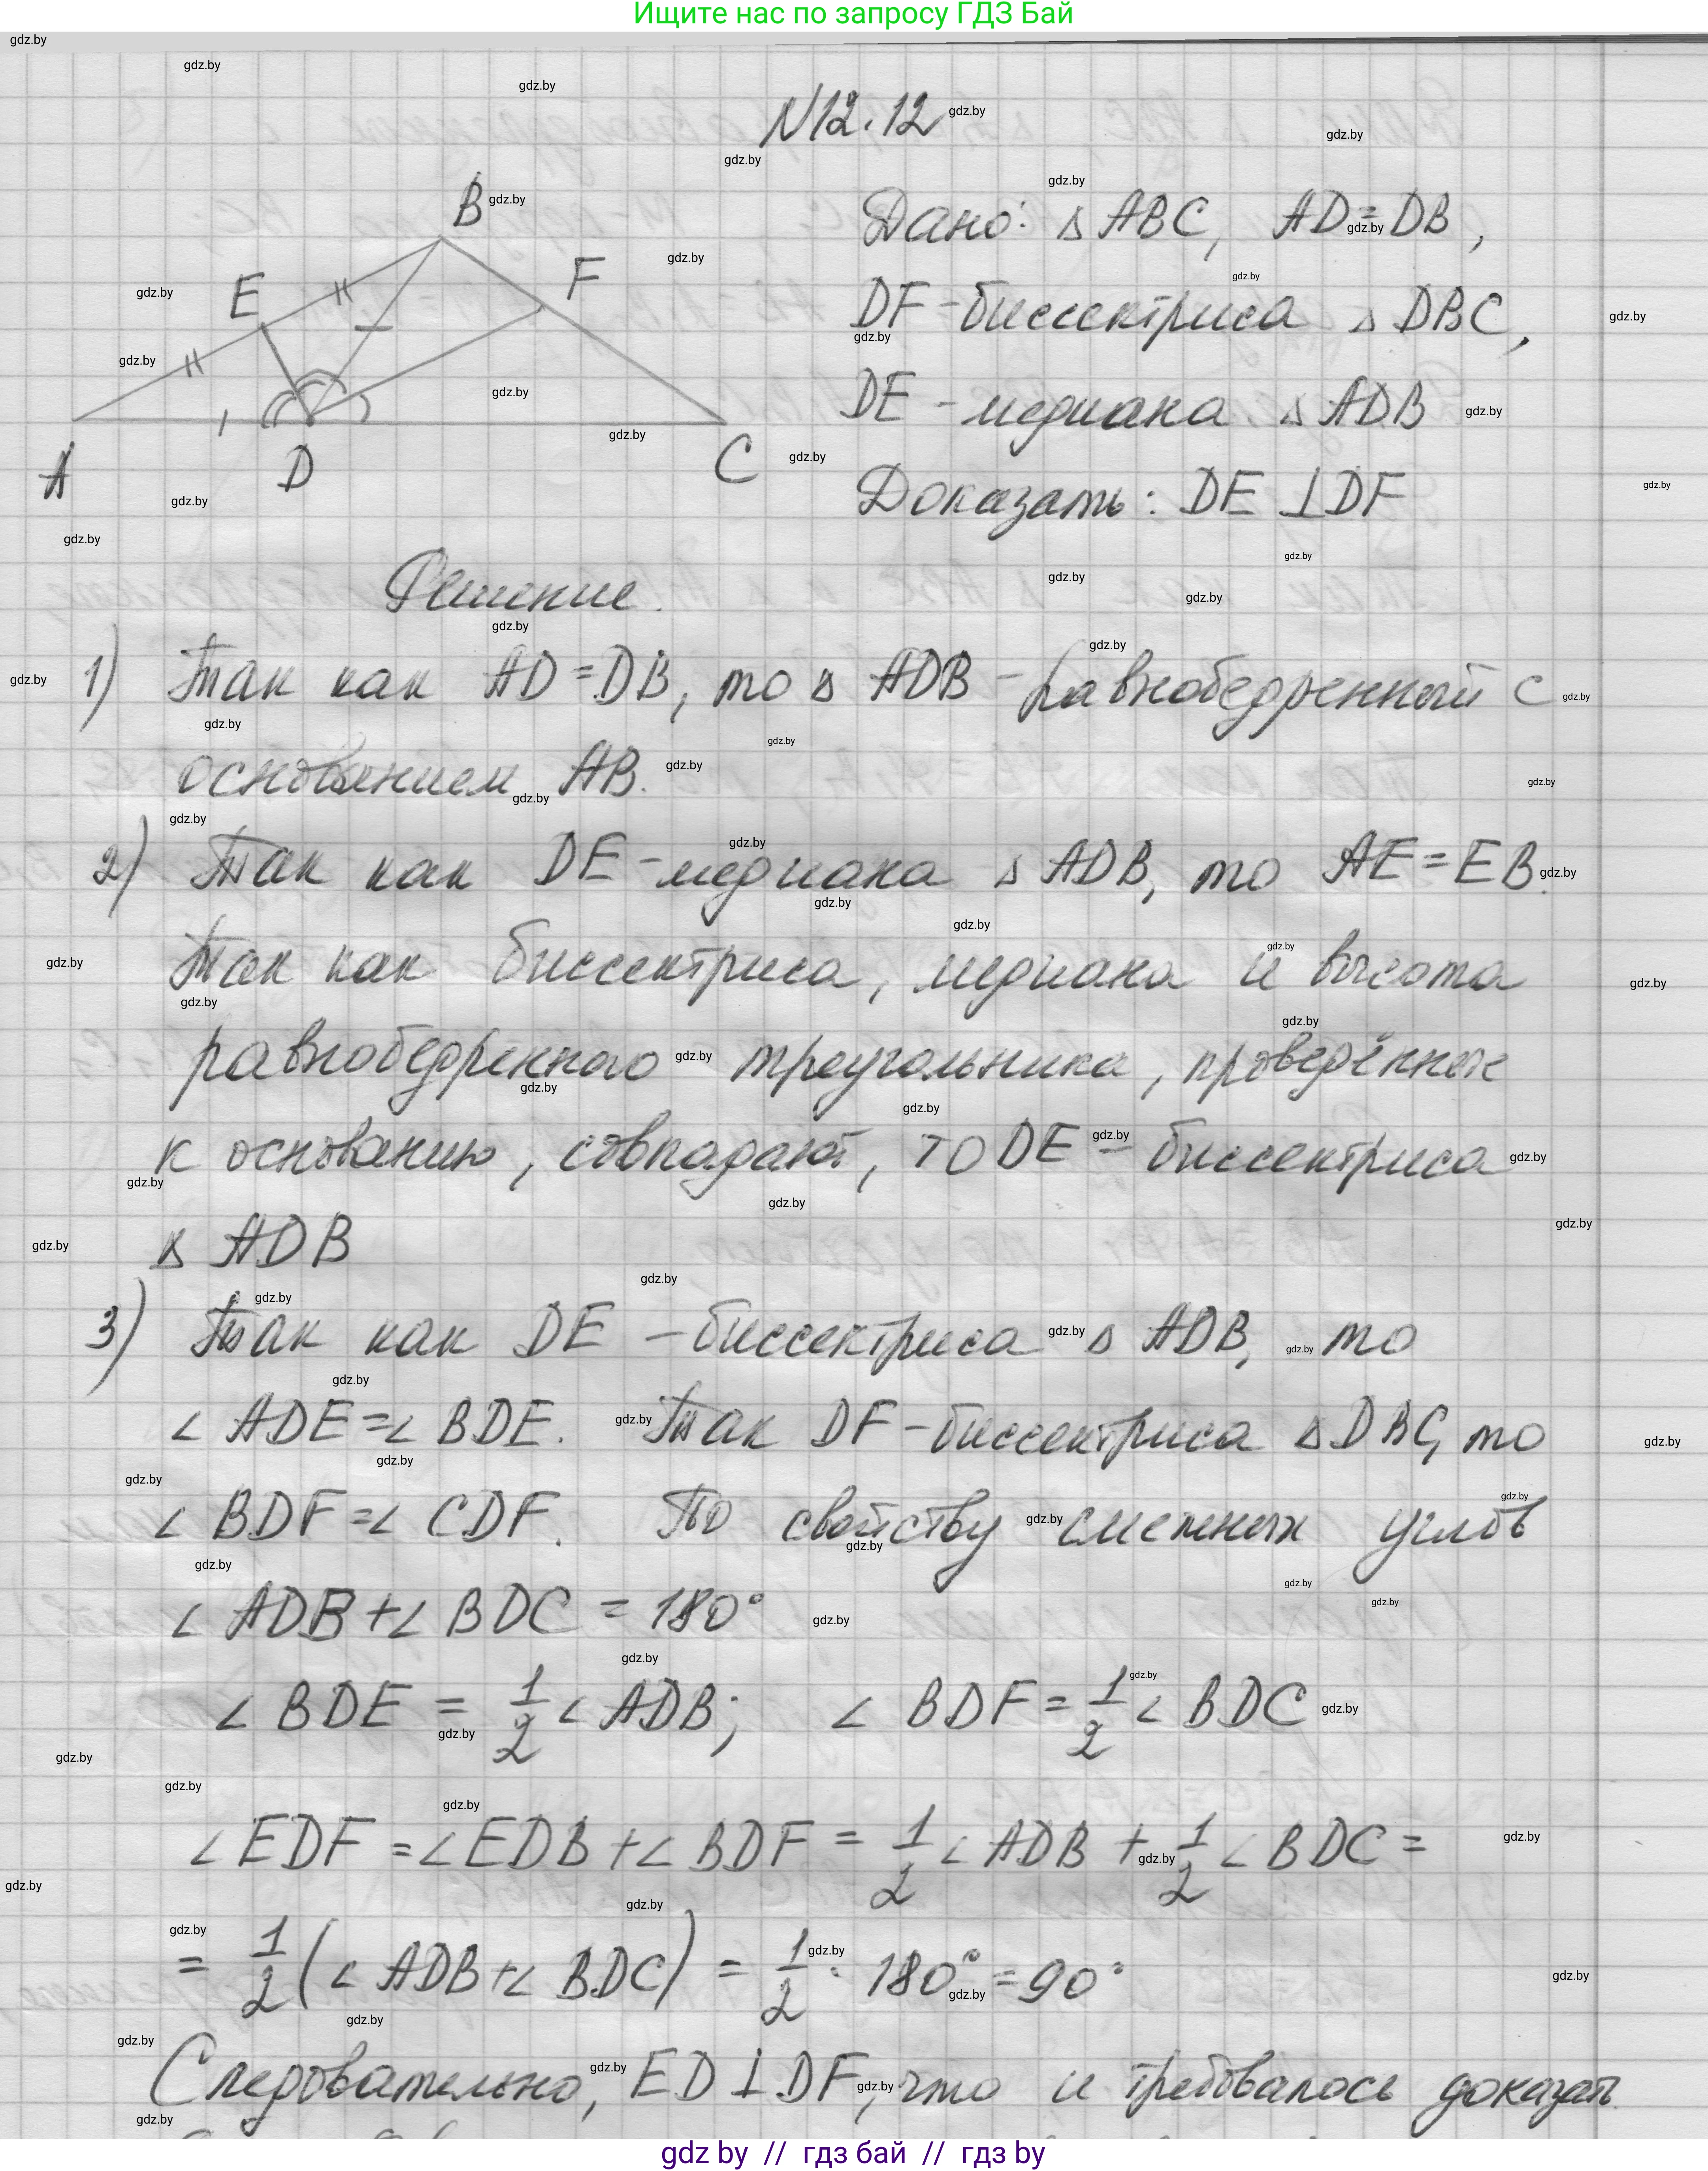 Ищите нас по запросу ГДЗ Бай
N12.12
B
E
F
A
D
C
Дано: △ ABC, AD=DB,
DF-биссектриса △ DBC,
DE - медиана △ ADB
Доказать: DE ⊥ DF
Решение.
1) Так как AD=DB, то △ ADB - равнобедренный с
основанием AB.
2) Так как DE-медиана △ ADB, то AE=EB.
Так как биссектриса, медиана и высота
равнобедренного треугольника, проведённые
к основанию, совпадают, то DE - биссектриса
△ ADB
3) Так как DE - биссектриса △ ADB, то
∠ ADE=∠ BDE. Так DF-биссектриса △ DBC, то
∠ BDF=∠ CDF. По свойству смежных углов
∠ ADB+∠ BDC = 180°
∠ BDE = 1/2 ∠ ADB; ∠ BDF = 1/2 ∠ BDC
∠ EDF = ∠ EDB + ∠ BDF = 1/2 ∠ ADB + 1/2 ∠ BDC =
= 1/2 (∠ ADB+∠ BDC) = 1/2 · 180° = 90°
Следовательно, ED ⊥ DF, что и требовалось доказать.
gdz by // гдз бай // гдз by